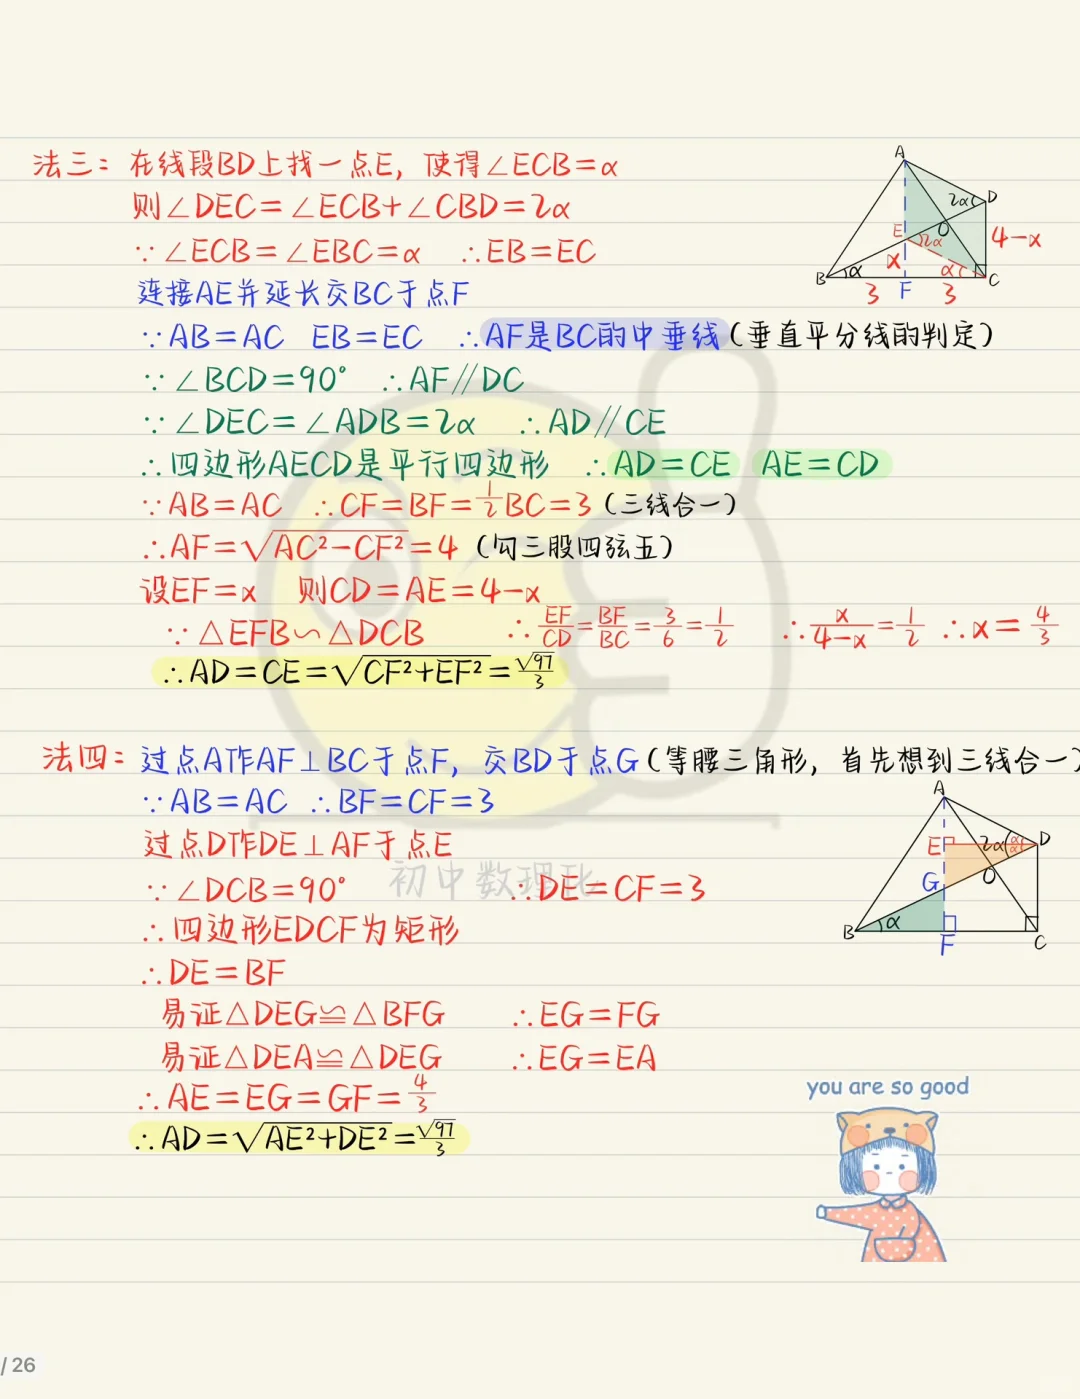 法三：在线段BD上找一点E，使得∠ECB=α
则∠DEC=∠ECB+∠CBD=2α
∵∠ECB=∠EBC=α ∴EB=EC
连接AE并延长交BC于点F
∵AB=AC EB=EC ∴AF是BC的中垂线（垂直平分线的判定）
∵∠BCD=90° ∴AF∥DC
∵∠DEC=∠ADB=2α ∴AD∥CE
∴四边形AECD是平行四边形 ∴AD=CE AE=CD
∵AB=AC ∴CF=BF=1/2BC=3（三线合一）
∴AF=√(AC²-CF²)=4（勾三股四弦五）
设EF=x 则CD=AE=4-x
∵△EFB∽△DCB ∴EF/CD=BF/BC=3/6=1/2 ∴x/(4-x)=1/2 ∴x=4/3
∴AD=CE=√(CF²+EF²)=√97/3
A
2α
D
E
O
2α
4-x
x
B
α
α
C
3
F
3
法四：过点A作AF⊥BC于点F，交BD于点G（等腰三角形，首先想到三线合一）
∵AB=AC ∴BF=CF=3
过点D作DE⊥AF于点E
∵∠DCB=90° ∴DE=CF=3
∴四边形EDCF为矩形
∴DE=BF
易证△DEG≌△BFG ∴EG=FG
易证△DEA≌△DEG ∴EG=EA
∴AE=EG=GF=4/3
∴AD=√(AE²+DE²)=√97/3
A
E
2α
α
α
D
G
O
B
α
F
C
初中数理化
you are so good
/ 26